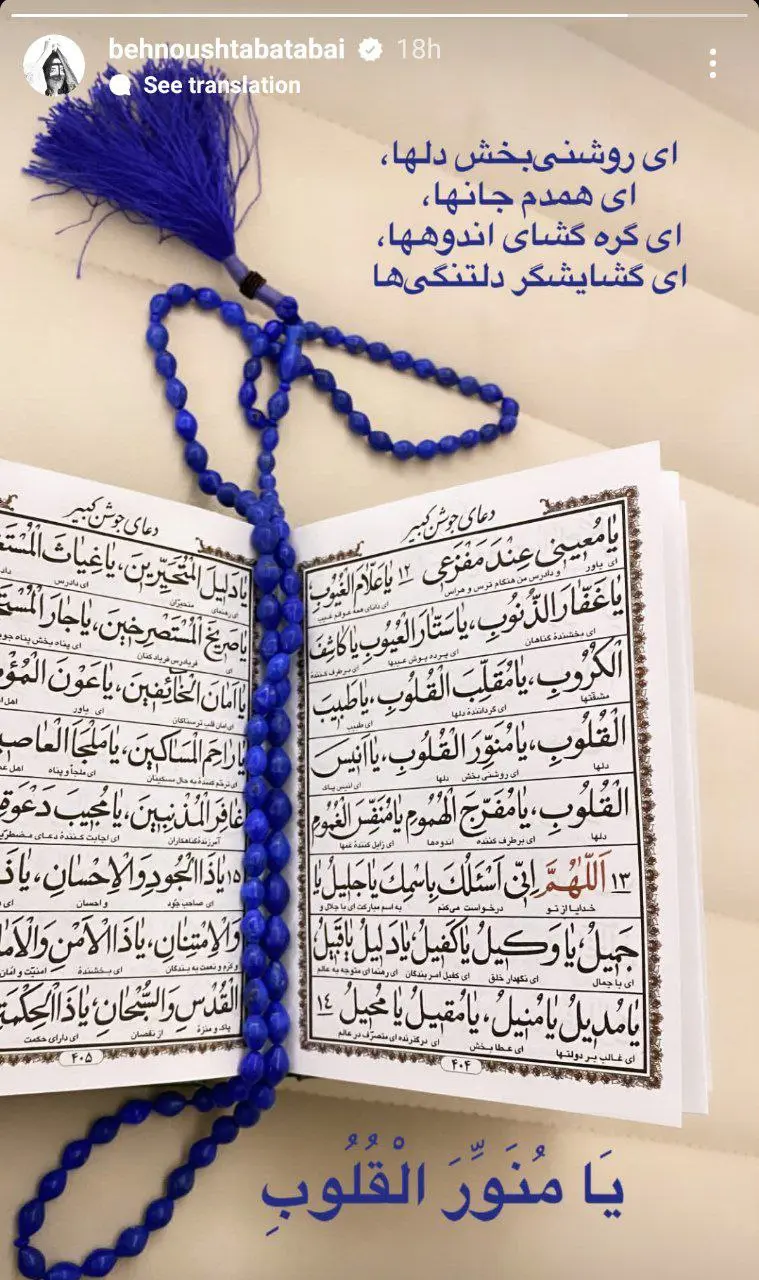 behnoushtabatabai 18h
See translation
ای روشنی‌بخش دلها،
ای همدم جانها،
ای گره گشای اندوهها،
ای گشایشگر دلتنگی‌ها
دعای جوشن کبیر
یا مُعینی عِنْدَ مَفْزَعی ۱۲ یا عَلّامَ الْغُیُوبِ
ای یاور و دادرس من هنگام ترس و هراس ای دانای همه عوالم غیب
یا غَفّارَ الذُّنُوبِ، یا سَتّارَ الْعُیُوبِ یا کاشِفَ
ای بخشندهٔ گناهان ای پرده پوش عیبها ای برطرف کنندهٔ
الْکُرُوبِ، یا مُقَلِّبَ الْقُلُوبِ، یا طَبیبَ
مشقتها ای گردانندهٔ دلها ای طبیب
الْقُلُوبِ، یا مُنَوِّرَ الْقُلُوبِ، یا اَنیسَ
دلها ای روشنی بخش دلها ای انیس پاک
الْقُلُوبِ، یا مُفَرِّجَ الْهُمُومِ یا مُنَفِّسَ الْغُمُومِ
دلها ای برطرف کننده اندوه‌ها ای زایل کنندهٔ غمها
۱۳ اَللّٰهُمَّ اِنّی اَسْئَلُکَ بِاسْمِکَ یا جَلیلُ یا
خدایا از تو درخواست می‌کنم به اسم مبارکت ای با جلال و
جَمیلُ، یا وَکیلُ یا کَفیلُ، یا دَلیلُ یا قَبیلُ
ای با جمال ای نگهدار خلق ای کفیل امر بندگان ای رهنما ای متوجه به عالم
یا مُدیلُ یا مُنیلُ، یا مُقیلُ یا مُحیلُ ۱۴
ای غالب بر دولتها ای عطا بخش ای درگذرنده ای متصرّف در عالم
۴۰۴
دعای جوشن کبیر
یا دَلیلَ الْمُتَحَیِّرینَ، یا غِیاثَ
ای رهنمای متحیّران ای دادرس
یا صَریخَ الْمُسْتَصْرِخینَ، یا جارَ
ای فریادرس فریاد کنان ای پناه بخش پناه
یا اَمانَ الْخآئِفینَ، یا عَوْنَ
ای امان قلب ترسناکان ای یاور
یا راحِمَ الْمَساکینَ، یا مَلْجَاَ
ای ترحّم کنندهٔ به حال مسکینان ای ملجأ و پناه
غافِرَ الْمُذْنِبینَ، یا مُجیبَ
آمرزندهٔ گناهکاران ای اجابت کنندهٔ دعای
۱۵ یا ذَا الْجُودِ وَالْاِحْسانِ، یا
ای صاحب جُود و احسان
وَالْاِمْتِنانِ، یا ذَا الْاَمْنِ
ای بخشندهٔ امنیّت و
الْقُدْسِ وَالسُّبْحانِ، یا ذَا
پاک و منزهٔ از نقصان ای دارای حکمت
۴۰۵
یَا مُنَوِّرَ الْقُلُوبِ